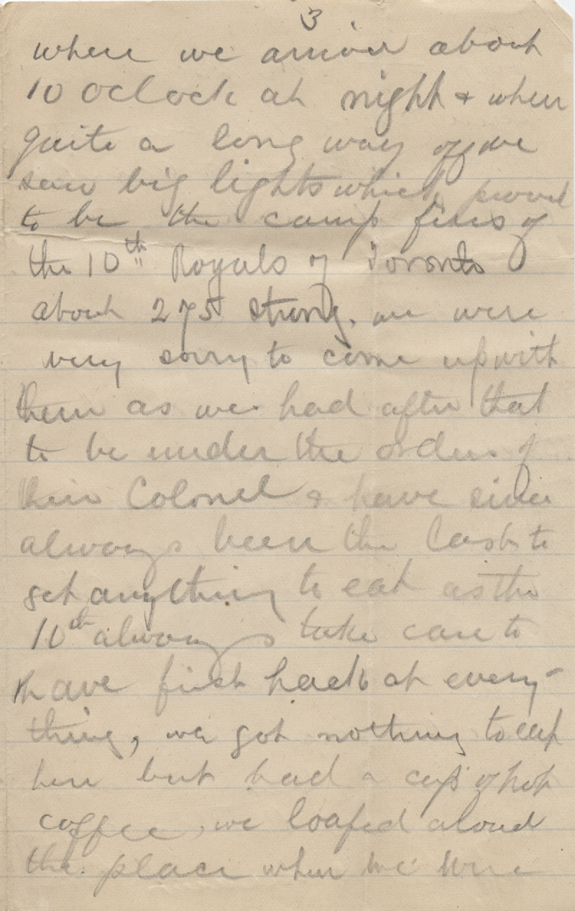 3
where we arrived about
10 oclock at night & when
quite a long way off we
saw big lights which proved
to be the camp fires of
the 10th Royals of Toronto
about 275 strong, we were
very sorry to come up with
them as we had after that
to be under the orders of
their Colonel & have since
always been the last to
get anything to eat as the
10th always take care to
have first hack at every-
thing, we got nothing to eat
here but had a cup of hot
coffee, we loafed aloud
the place when we were